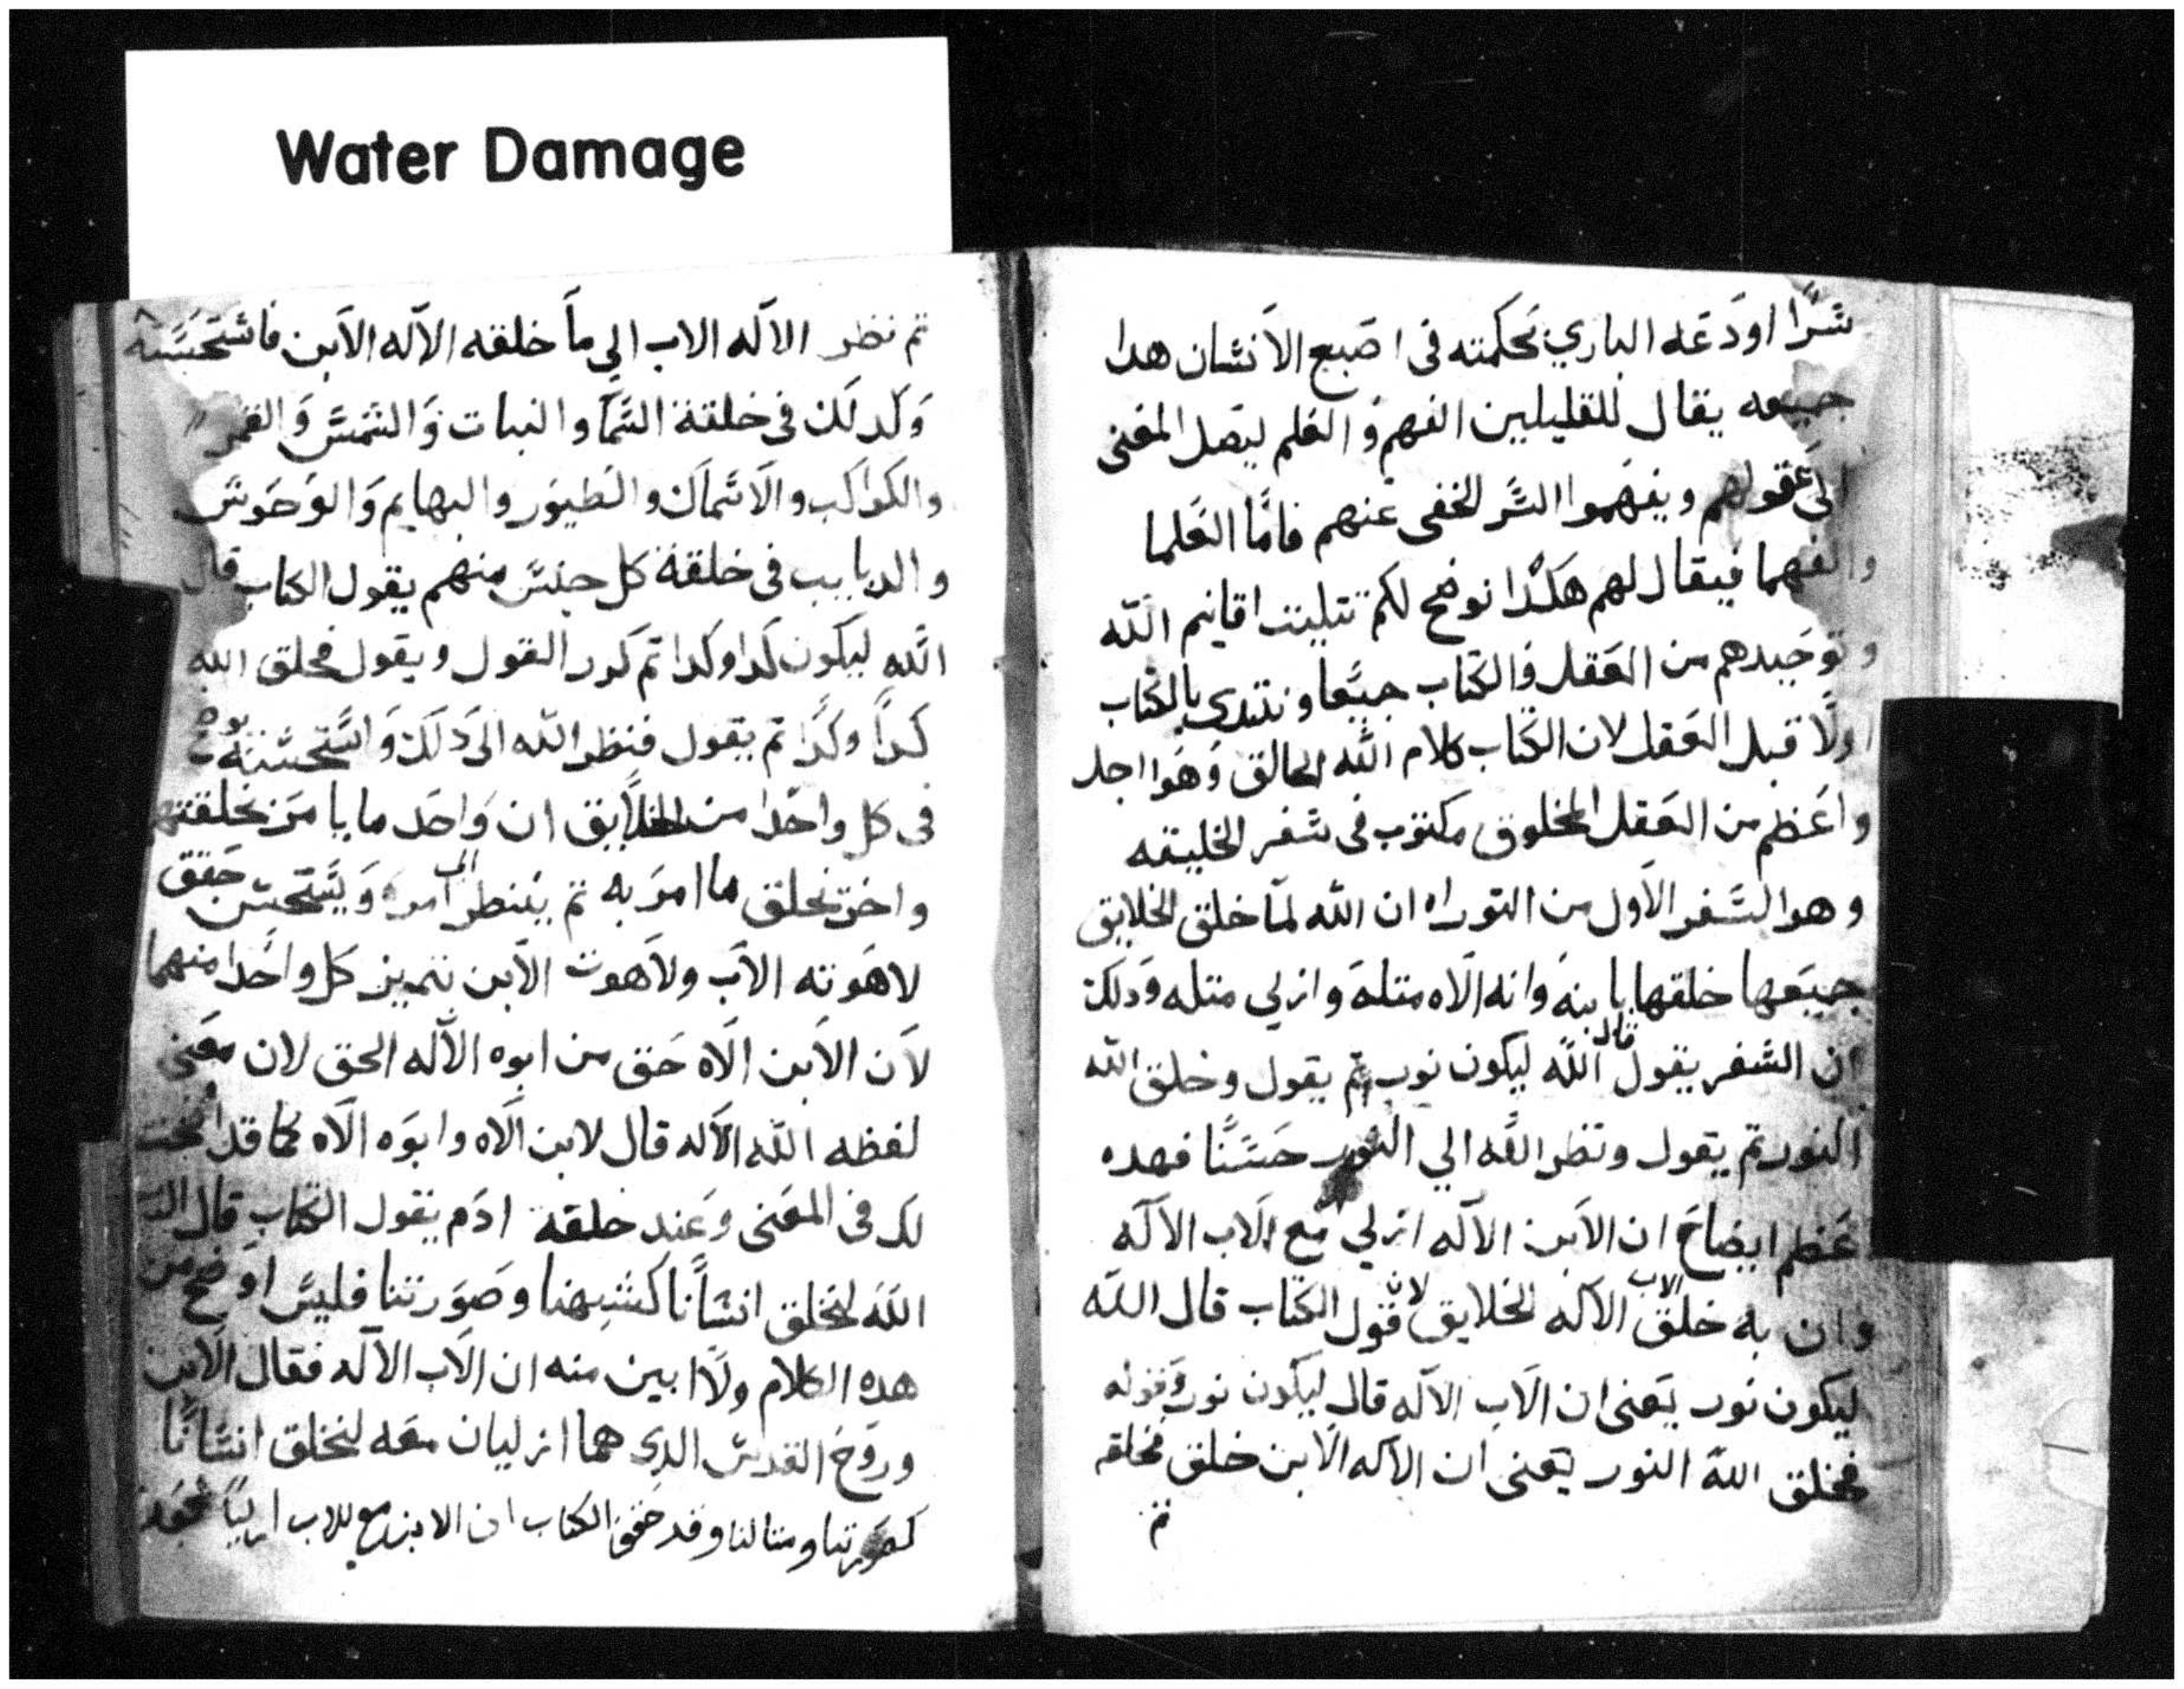 Water Damage
سرا اودعه الباري بحكمته فى اصبع الانسان هدا
جميعه يقال للقليلين الفهم و العلم ليصل المعنى
الى عقولهم ويفهموا السر الخفى عنهم فاما العلما
والفهما فيقال لهم هكدا نوضح لكم تتليت اقانيم الله
وتوحيدهم من العقل والكتاب جميعا ونبتدى بالكتاب
اولا قبل العقل لان الكتاب كلام الله الخالق وهوا اجل
واعظم من العقل المخلوق مكتوب فى سفر الخليقه
وهو السفر الاول من التوراه ان الله لما خلق الخلايق
جميعها خلقها بابنه وانه الاه متله وازلي متله ودلك
ان السفر يقول قال الله ليكون نور تم يقول وخلق الله
النور تم يقول ونظر الله الي النور حسنا فهده
عظم ايضاح ان الابن الاله ازلي مع الاب الاله
وان به خلق الاب الاله الخلايق لان قول الكتاب قال الله
ليكون نور يعنى ان الاب الاله قال ليكون نور وقوله
فخلق الله النور يعنى ان الاله الابن خلق فخلقه
تم
تم نظر الاله الاب الي ما خلقه الاله الابن فاستحسنه
وكدلك فى خلقة السما والنبات والشمس والقمر
والكواكب والاسماك والطيور والبهايم والوحوش
والدبابيب فى خلقة كل جنس منهم يقول الكتاب قال
الله ليكون كدا وكدا تم كرر القول ويقول فخلق الله
كدا وكدا تم يقول فنظر الله الى دلك واستحسنه
فى كل واحدا من الخلايق ان واحد ما يامر بخلقتهم
واخر يخلق ما امر به تم ينظر الى امره ويستحسن حقق
لاهوته الاب ولاهوت الابن بتمييز كل واحدا منهما
لان الابن الاه حق من ابوه الاله الحق لان معنى
لفظه الله الاله قال لابن الاه وابوه الاه كما قد اوضحت
لك فى المعنى وعند خلقة ادم يقول الكتاب قال
الله لنخلق انسانا كشبهنا وصورتنا فليس اوضح من
هده الكلام ولا ابين منه ان الاب الاله فقال الابن
وروح القدس الدي هما ازليان معه لنخلق انسانا
كصورتنا ومتالنا وقد حقق الكتاب ان الابن مع للاب ازليا